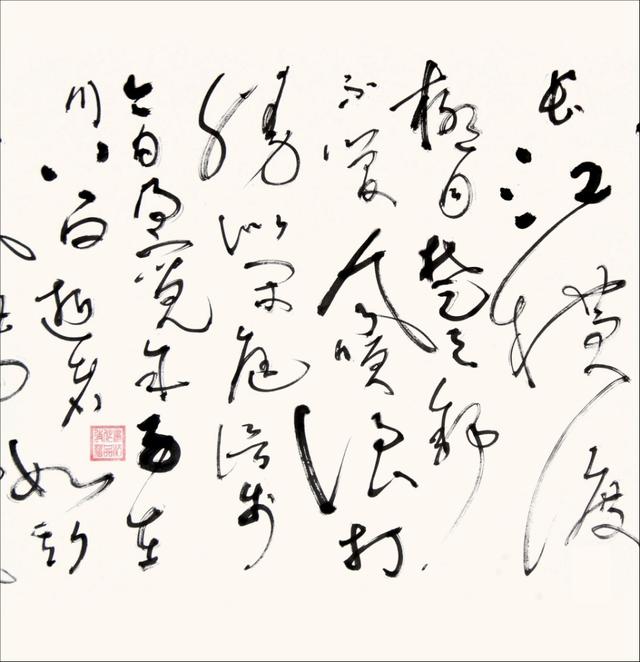 长江横渡
極目楚天舒
不管風吹浪打
勝似閑庭信步
今日得寬余子在
川上曰逝者如斯